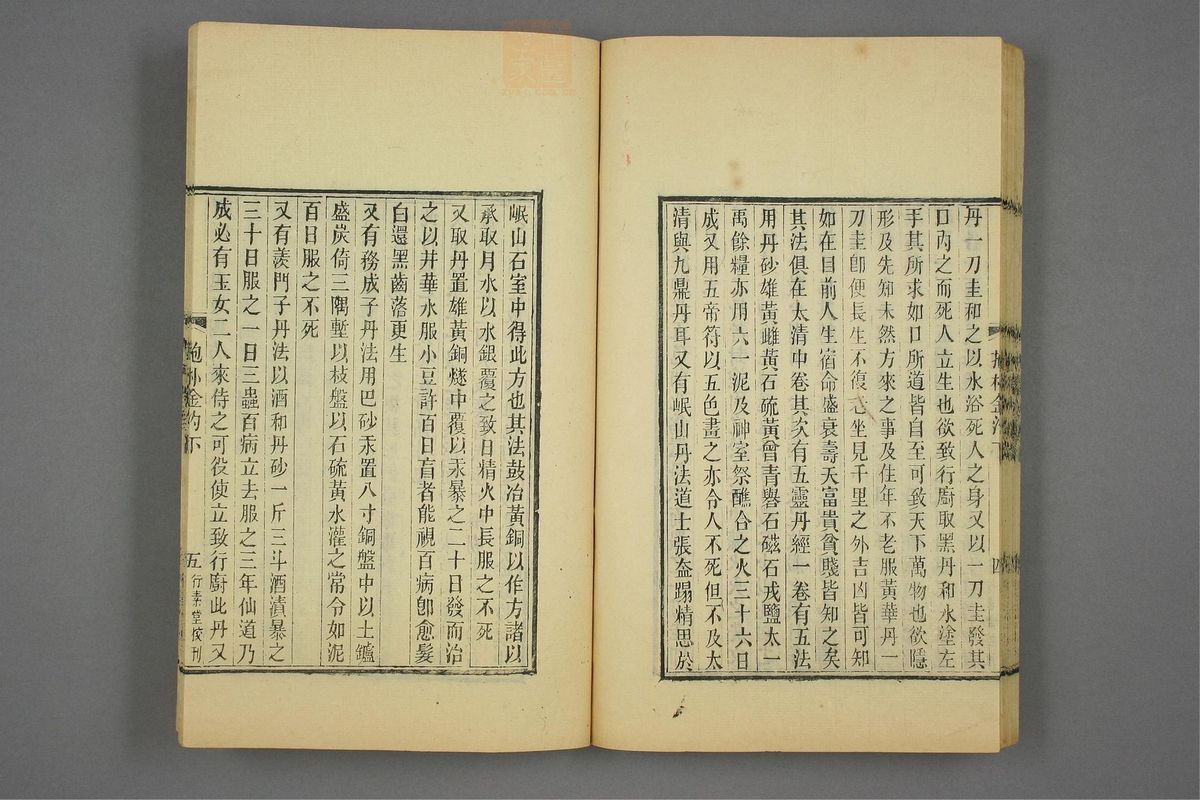 丹一刀圭和之以水浴死人之身又以一刀圭發其
口內之而死人立生也欲致行廚取黑丹和水塗左
手其所求如口所道皆自至可致天下萬物也欲隱
形及先知未然方來之事及住年不老服黃華丹一
刀圭卽便長生不復老坐見千里之外吉凶皆可知
如在目前人生宿命盛衰壽夭富貴貧賤皆知之矣
其法俱在太清中卷其次有五靈丹經一卷有五法
用丹砂雄黃雌黃石硫黃曾青礜石磁石戎鹽太一
禹餘糧亦用六一泥及神室祭醮合之火三十六日
成又用五帝符以五色畫之亦令人不死但不及太
清與九鼎丹耳又有岷山丹法道士張盍蹋精思於
四
岷山石室中得此方也其法鼓冶黃銅以作方諸以
承取月水以水銀覆之致日精火中長服之不死
又取丹置雄黃銅燧中覆以汞暴之二十日發而治
之以井華水服小豆許百日盲者能視百病卽愈髮
白還黑齒落更生
又有務成子丹法用巴砂汞置八寸銅盤中以土鑪
盛炭倚三隅塹以枝盤以石硫黃水灌之常令如泥
百日服之不死
又有羡門子丹法以酒和丹砂一斤三斗酒漬暴之
三十日服之一日三蟲百病立去服之三年仙道乃
成必有玉女二人來侍之可役使立致行廚此丹又
抱朴金汋下
五
行素堂校刊